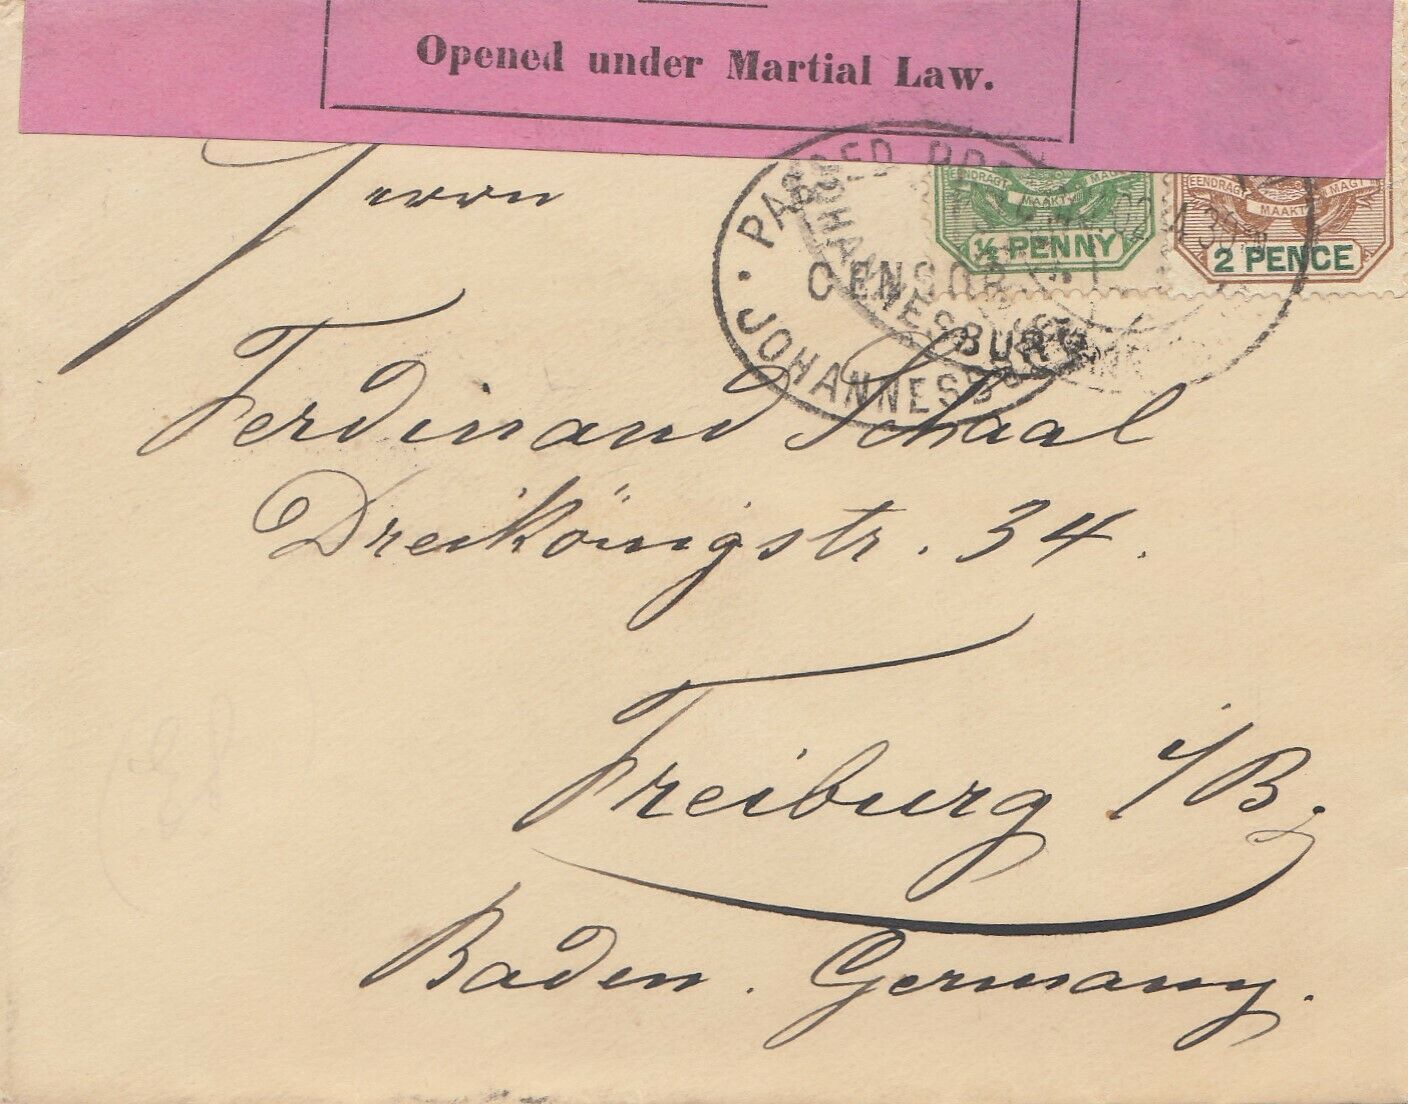 Opened under Martial Law.
PASSED PRE
CENSOR
JOHANNESBU
JOHANNESBURG
EENDRAGT MAAKT MAGT
½ PENNY
EENDRAGT MAAKT MAGT
2 PENCE
Herrn
Ferdinand Schaal
Dreikönigstr. 34.
Freiburg i/B.
Baden. Germany.